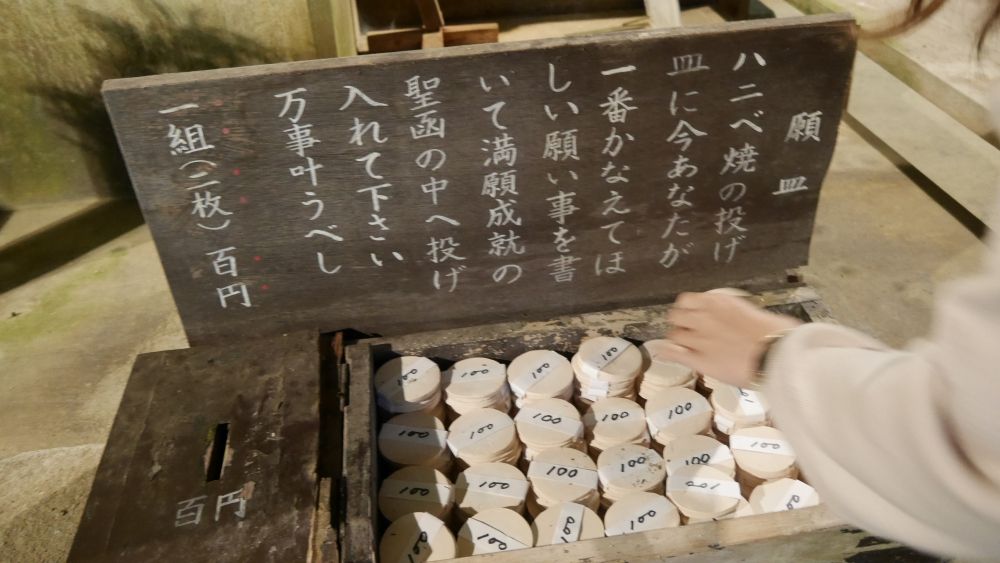 願皿
ハニベ焼の投げ
皿に今あなたが
一番かなえてほ
しい願い事を書
いて満願成就の
聖函の中へ投げ
入れて下さい
万事叶うべし
一組(二枚)百円
百円
100
100
100
100
100
100
100
100
100
100
100
100
100
100
100
100
100
100
100
100
100
100
100